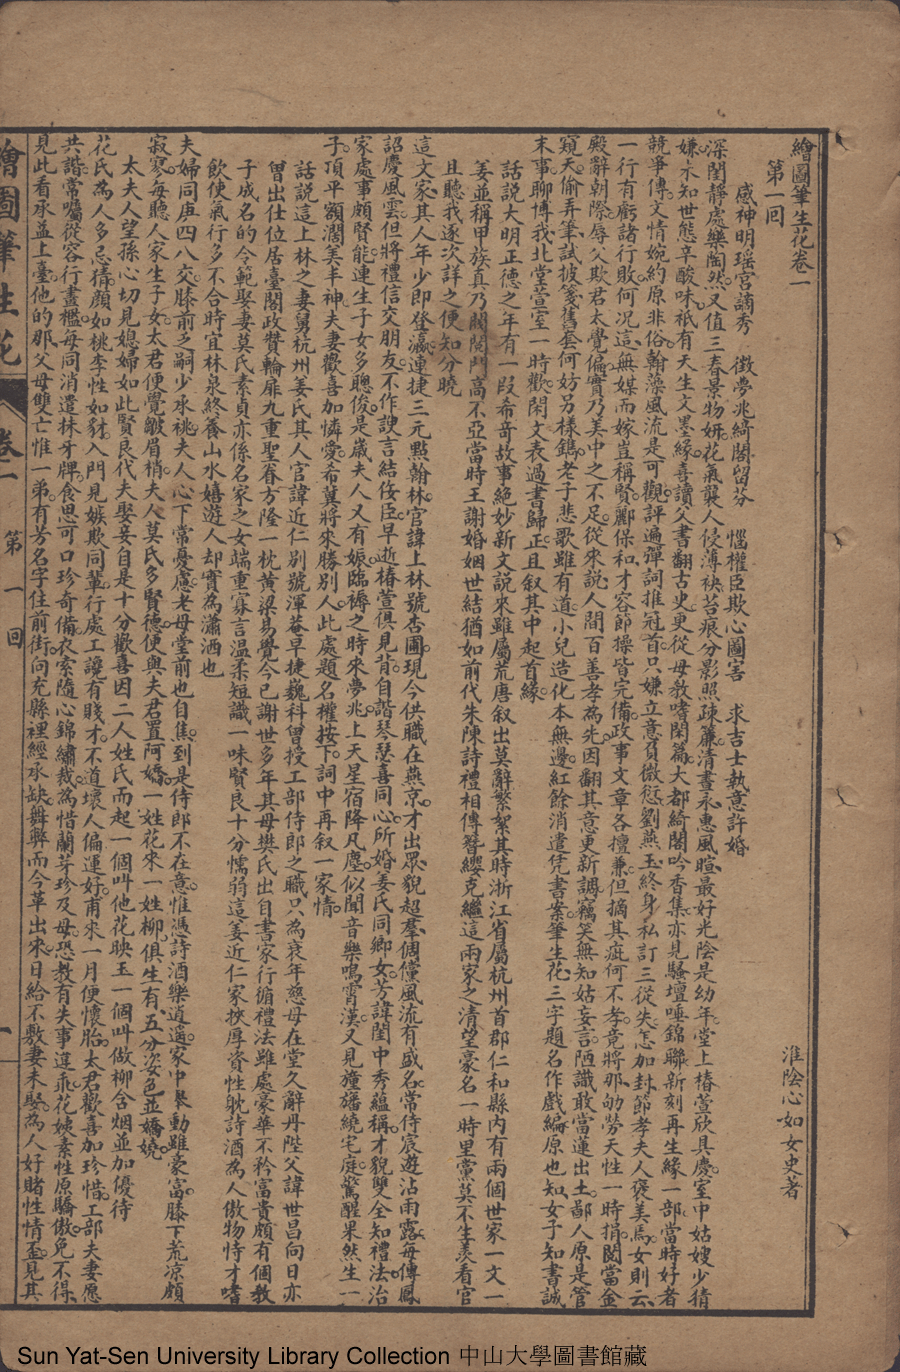 繪圖筆生花卷一
第一回
淮陰心如女史著
感神明瑶宮謫秀 徵夢兆綺閣留芬 惱權臣欺心圖害 求吉士執意許婚
深閨靜處樂陶然又值三春景物妍花氣襲人侵薄袂苔痕分影照疎簾清晝永惠風暄最好光陰是幼年堂上椿萱欣具慶室中姑嫂少猜
嫌未知世態辛酸味祇有天生文墨緣喜讀父書翻古史更從母教嗜閑篇大都綺閣吟香集亦見騷壇唾錦聯新刻再生緣一部當時好者
競爭傳文情婉約原非俗翰藻風流是可觀評遍彈詞推冠首只嫌立意負微愆劉燕玉終身私訂三從失怎加封節孝夫人褒美焉女則云
一行有虧諸行敗何况這無媒而嫁豈稱賢酈保和才容節操皆完備政事文章各擅兼但摘其疵何不孝竟將那劬勞天性一時捐閱當金
殿辭朝際辱父欺君太覺偏實乃美中之不足從來說人間百善孝為先因翻其意更新調竊笑無知姑妄言陋識敢當蓮出土鄙人原是管
窺天偷弄筆試披箋舊套何妨另樣鐫老子悲歌雖有道小兒造化本無邊紅餘消遣凭書案筆生花三字題名作戲編原也知女子知書誠
末事聊博我北堂萱室一時歡閑文表過書歸正且叙其中起首緣
話說大明正德之年有一段希奇故事絕妙新文說來雖屬荒唐叙出莫辭繁絮其時浙江省屬杭州首郡仁和縣內有兩個世家一文一
姜並稱甲族真乃閥閱門高不亞當時王謝婚姻世結猶如前代朱陳詩禮相傳簪纓克繼這兩家之清望豪名一時里黨莫不生羨看官
且聽我逐次詳之便知分曉
這文家其人年少即登瀛連捷三元點翰林官諱上林號杏圃現今供職在燕京才出眾貌超羣倜儻風流有盛名常侍宸遊沾雨露每傳鳳
詔慶風雲但將禮信交朋友不作諛言結佞臣早逝椿萱俱見背自諧琴瑟喜同心所婚姜氏同鄉女芳諱閨中秀蘊稱才貌雙全知禮法治
家處事頗賢能連生子女多聰俊是歲夫人又有娠臨褥之時來夢兆上天星宿降凡塵似聞音樂鳴霄漢又見旛幡繞宅庭驚醒果然生一
子頂平額濶美丰神夫妻歡喜加憐愛希冀將來勝別人此處題名權按下詞中再叙一家情
話說這上林之妻舅杭州姜氏其人官諱近仁別號渾菴早捷巍科曾授工部侍郎之職只為衰年慈母在堂久辭丹陛父諱世昌向日亦
曾出仕位居臺閣政贊輪扉九重聖眷方隆一枕黄粱易覺今已謝世多年其母樊氏出自書家行循禮法雖處豪華不矜富貴頗有個教
子成名的令範娶妻莫氏素貞亦係名家之女端重寡言溫柔短識一味賢良十分懦弱這姜近仁家挾厚資性躭詩酒為人傲物恃才嗜
飲使氣行多不合時宜林泉終養山水嬉遊人却實為瀟洒也
夫婦同庚四八交膝前乏嗣少承祧夫人心下常憂慮老母堂前也自焦到是侍郎不在意惟憑詩酒樂逍遥家中舉動雖豪富膝下荒凉頗
寂寥每聽人家生子女太君便覺皺眉梢夫人莫氏多賢德便與夫君置阿嬌一姓花來一姓柳俱生有五分姿色並嬌嬈
太夫人望孫心切見媳婦如此賢良代夫娶妾自是十分歡喜因二人姓氏而起一個叫他花映玉一個叫做柳含烟並加優待
花氏為人多忌猜顏如桃李性如豺入門見嫉欺同輩行處工讒有賤才不道壞人偏運好甫來一月便懷胎太君歡喜加珍惜工部夫妻愿
共諧常囑從容行畫檻每同消遣抹牙牌食思可口珍奇備衣索隨心錦繡裁為惜蘭芽珍及母恐教有失事違乖花姨素性原驕傲免不得
見此看承益上臺他的那父母雙亡惟一弟有芳名字住前街向充縣裡經承缺舞弊而今革出來日給不敷妻未娶為人好賭性情歪見其
繪圖筆生花 卷一 第一回 一
Sun Yat-Sen University Library Collection 中山大學圖書館藏